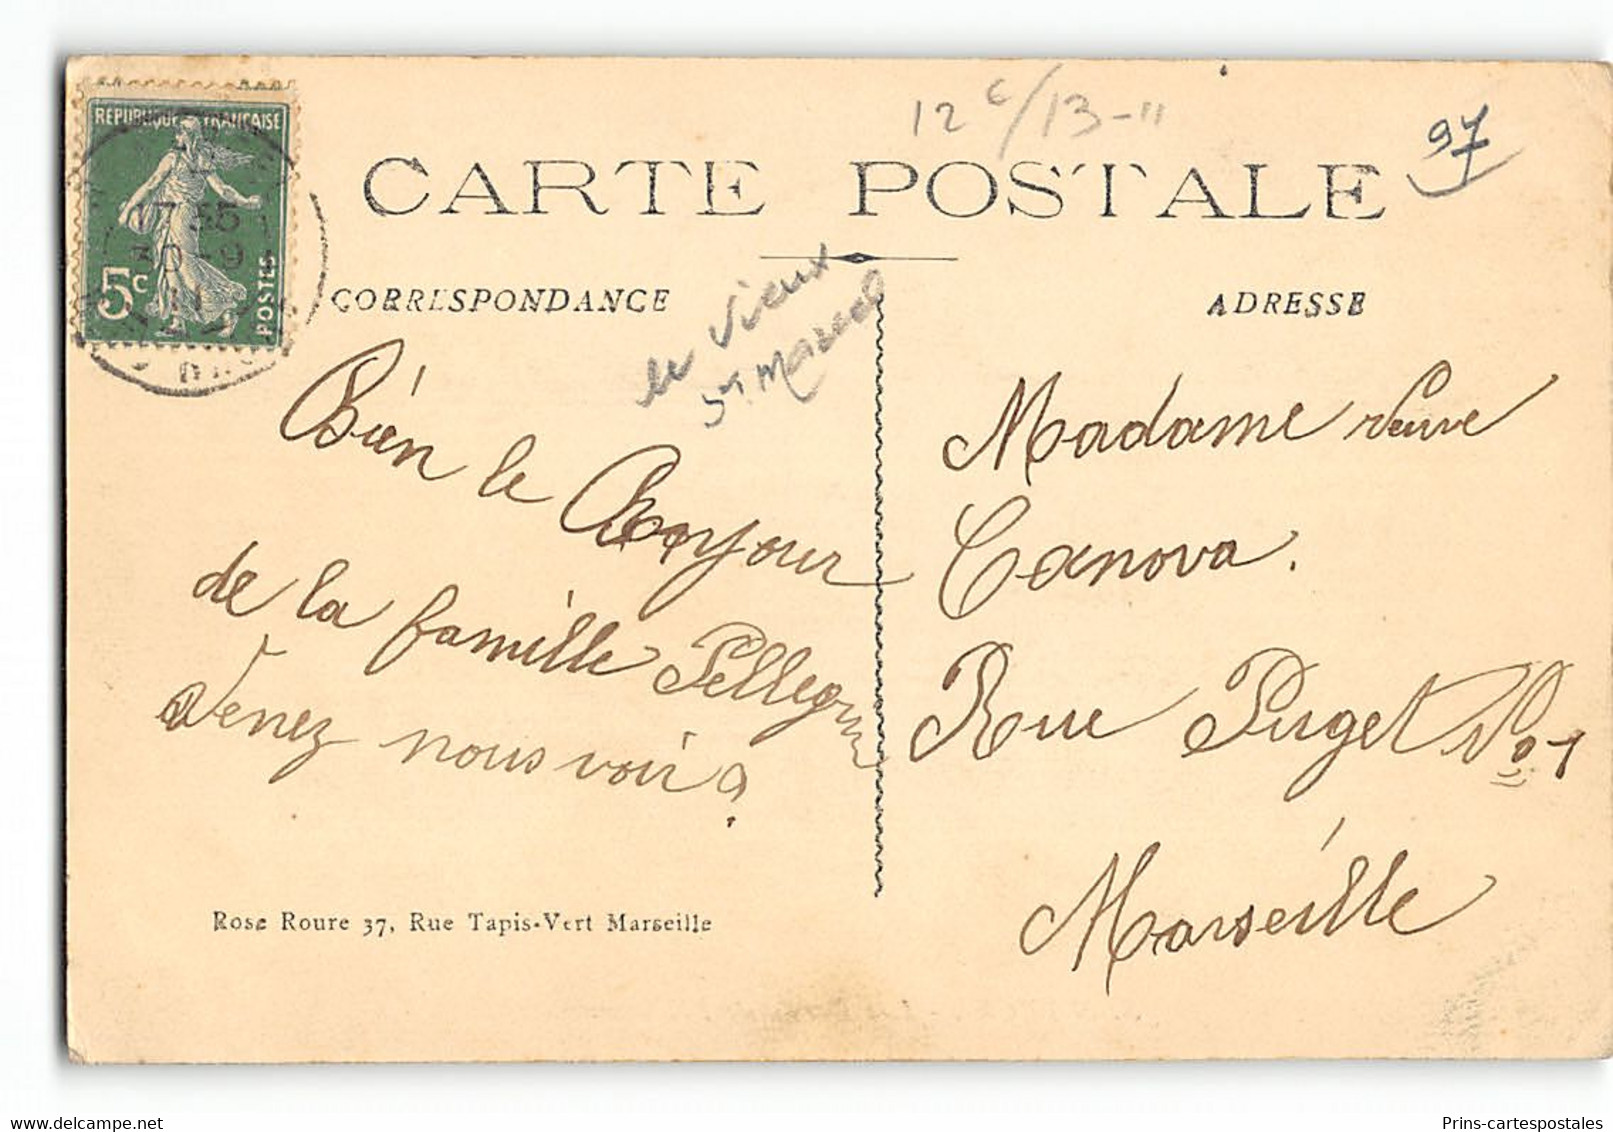 12 c/13-11
97
REPUBLIQUE FRANÇAISE
17 35
30-9
11
5c
POSTES
CARTE POSTALE
CORRESPONDANCE
ADRESSE
le vieux
St. Marcel
Bién le Bonjour
de la famille Pellegrin
Venez nous voir?
Madame veuve
Canova.
Rue Puget No 1
Marseille
Rose Roure 37, Rue Tapis-Vert Marseille
Prins-cartespostales